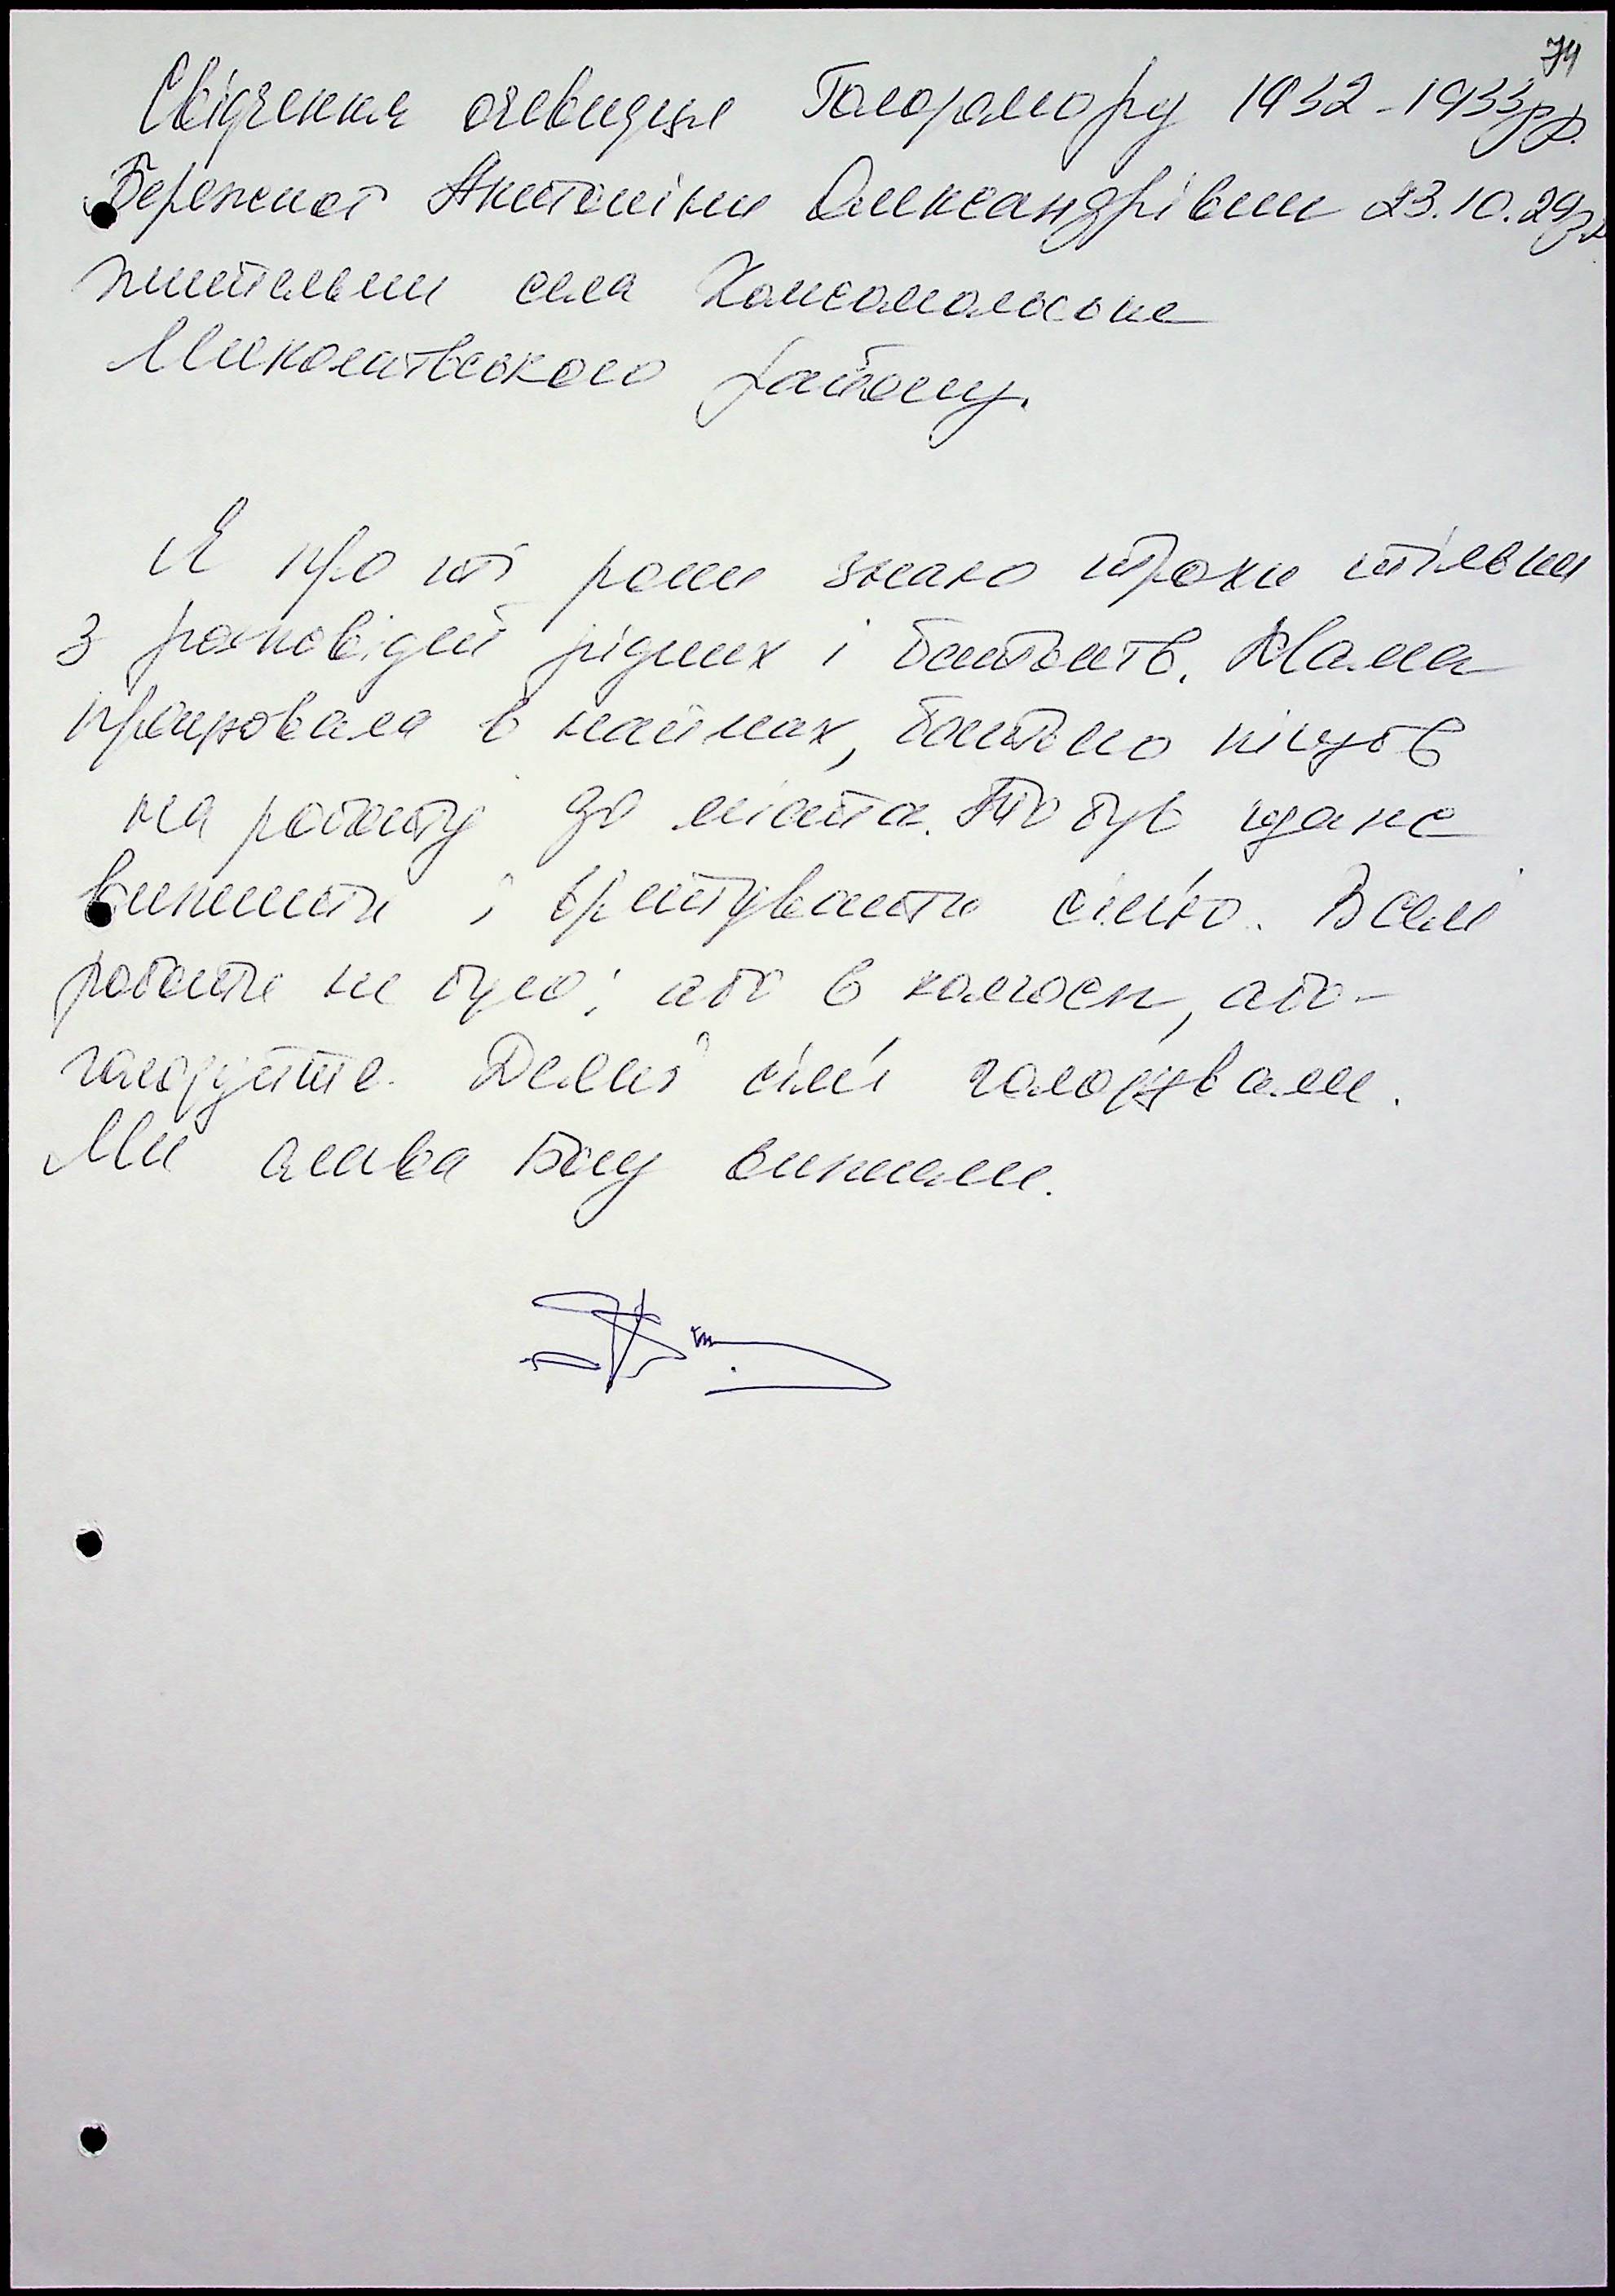 74
Свідчення очевидця Голодомору 1932-1933рр.
Бережної Антоніни Олександрівни 23.10.29р.
жительки села Комсомольське
Миколаївського району.
Я про ті роки знаю трохи тільки
з розповідей рідних і батьків. Мама
працювала в наймах, батько пішов
на роботу до міста. То був шанс
вижити і врятувати сім'ю. В селі
роботи не було: або в колгосп, або-
голодуйте. Деякі сім'ї голодували.
Ми слава Богу вижили.